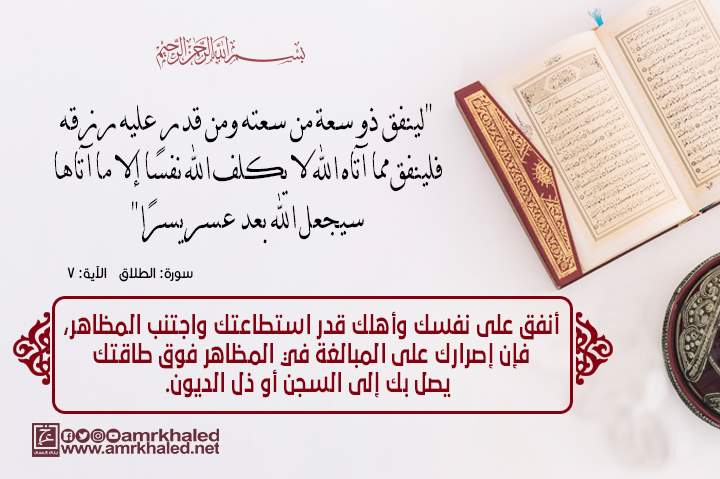 بسم الله الرحمن الرحيم
"لينفق ذو سعة من سعته ومن قدر عليه رزقه
فلينفق مما آتاه الله لا يكلف الله نفسًا إلا ما آتاها
سيجعل الله بعد عسر يسرًا"
سورة: الطلاق الآية: ٧
أنفق على نفسك وأهلك قدر استطاعتك واجتنب المظاهر،
فإن إصرارك على المبالغة في المظاهر فوق طاقتك
يصل بك إلى السجن أو ذل الديون.
amrkhaled
www.amrkhaled.net